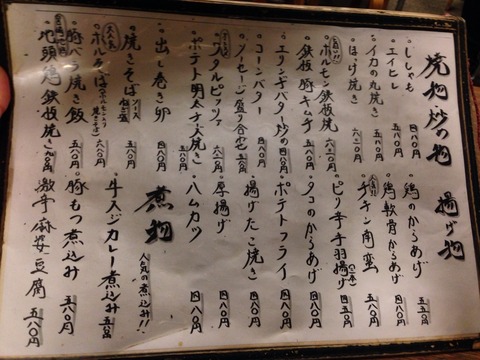 焼物・炒め物
ししゃも 四八〇円
エイヒレ 四八〇円
イカの丸焼き 五八〇円
ほっけ焼き 六二〇円
ホルモン鉄板焼 六三〇円
鉄板 豚キムチ 五八〇円
エリンギバター炒め 四八〇円
コーンバター 四八〇円
ソーセージ盛り合せ 五八〇円
イタルピッツァ
ポテト明太子火焼き 五八〇円
出し巻き卵 四八〇円
焼きそば ソース 塩 五八〇円
ホルそば 六八〇円
豚バラ焼き飯 五八〇円
地頭鶏鉄板焼き 九八〇円
揚げ物
鶏のからあげ 五五〇円
鶏軟骨からあげ 四八〇円
チキン南蛮 五八〇円
ピリ辛手羽揚げ 四五〇円
タコのからあげ 四八〇円
ポテトフライ 四八〇円
揚げたこ焼き 四八〇円
厚揚げ 四八〇円
ハムカツ 四八〇円
煮物
人気の煮込み!!
牛スジカレー煮込み 五八〇円
豚もつ煮込み 五八〇円
激辛麻婆豆腐 五八〇円